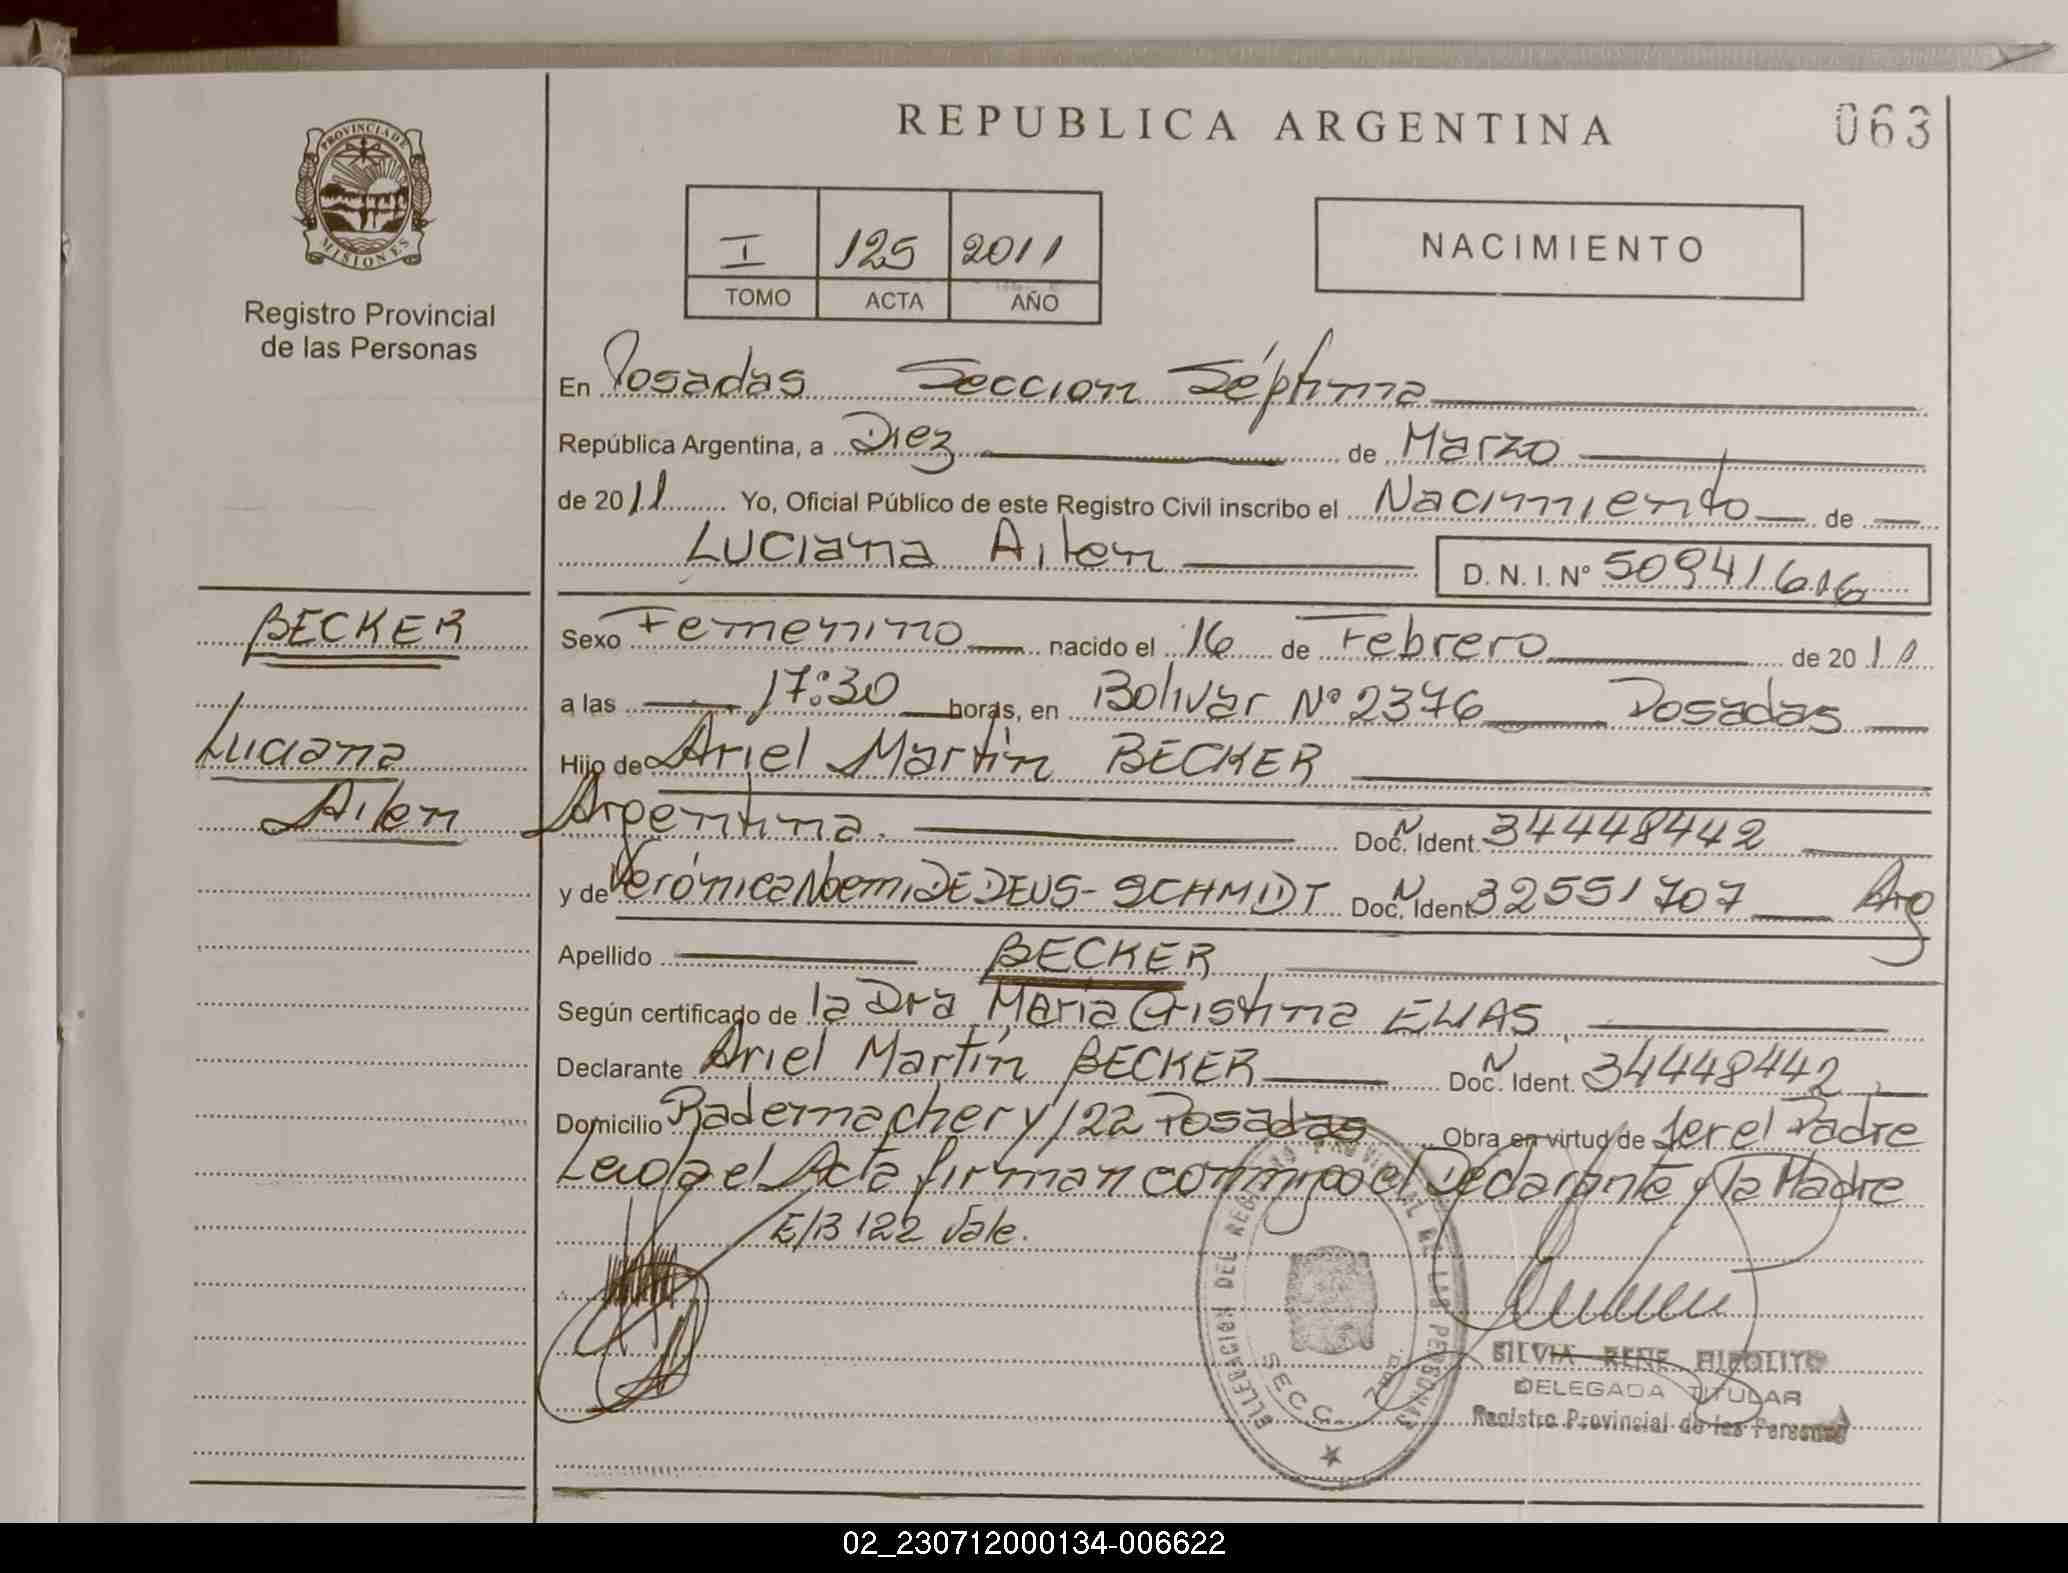 REPUBLICA ARGENTINA
063
PROVINCIA DE
MISIONES
Registro Provincial
de las Personas
I 125 2011
TOMO ACTA AÑO
NACIMIENTO
En Posadas Seccion Séptima
República Argentina, a Diez de Marzo
de 2011 Yo, Oficial Público de este Registro Civil inscribo el Nacimiento de
Luciana Ailen D. N. I. Nº 50941616
BECKER
Luciana
Ailen
Sexo Femenino nacido el 16 de Febrero de 2011
a las 17:30 horas, en Bolivar Nº 2376 Posadas
Hijo de Ariel Martín BECKER
Argentina. Doc. Ident. 34448442
y de Verónica Noemi DE DEUS - SCHMIDT Doc. Ident. 32551707 Arg
Apellido BECKER
Según certificado de la Dra María Cristina ELIAS
Declarante Ariel Martín BECKER Doc. Ident. 34448442
Domicilio Rademacher y 122 Posadas Obra en virtud de ser el Padre
Leida el Acta firman conmigo el Declarante y la Madre
E/B 122 Vale.
DELEGACION DEL REGISTRO PROVINCIAL DE LAS PERSONAS
SECC. 7ma
SILVIA RENE HIPOLITO
DELEGADA TITULAR
Registro Provincial de las Personas
02_230712000134-006622